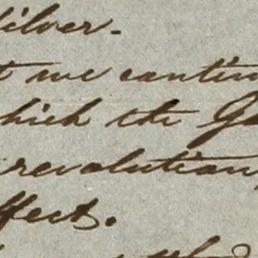 silver.
we contin
which the G
revolution
ffect.